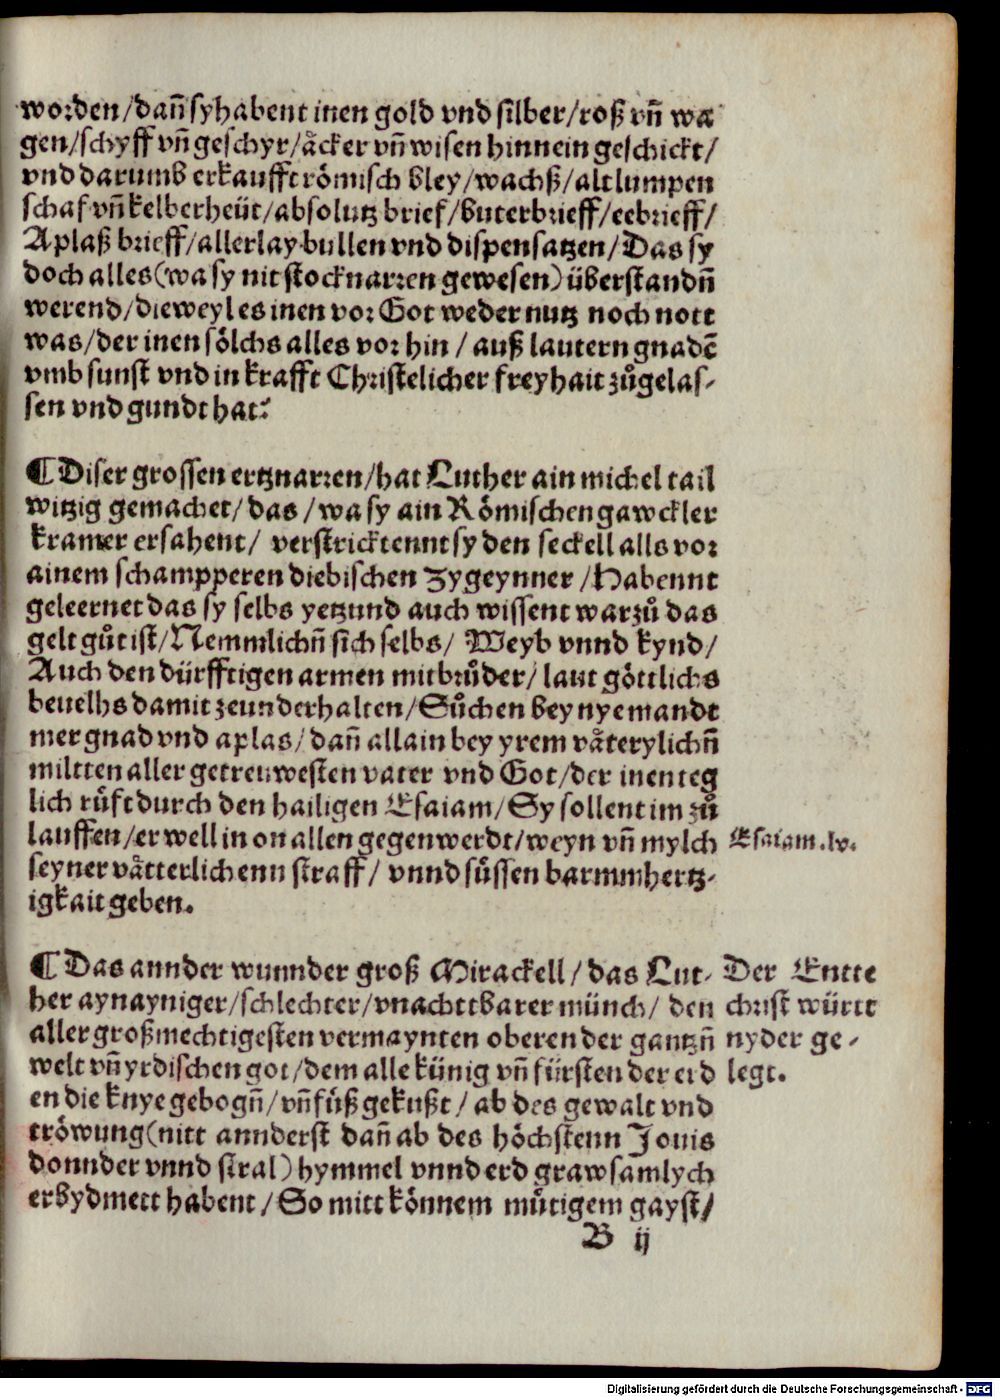 worden/dañ sy habent inen gold vnd silber/roß vñ wa
gen/schyff vñ geschyr/äcker vñ wisen hinnein geschickt/
vnd darumb erkaufft römisch bley/wachß/alt lumpen
schaf vñ kelberheüt/absolutz brief/buterbrieff/eebrieff/
Aplaß brieff/allerlay bullen vnd dispensatzen/Das sy
doch alles (wa sy nit stocknarren gewesen) überstandñ
werend/dieweyl es inen vor Got weder nutz noch nott
was/der inen sölchs alles vor hin / auß lautern gnadē
vmb sunst vnd in krafft Christelicher freyhait zůgelas-
sen vnd gundt hat.
¶ Diser grossen ertznarren/hat Luther ain michel tail
witzig gemachet/ das/wa sy ain Römischen gawckler
kramer ersahent/ verstricktennt sy den seckell alls vor
ainem schampperen diebischen Zygeynner/Habennt
geleernet das sy selbs yetzund auch wissent warzů das
gelt gůt ist/Nemmlichñ sich selbs/ Weyb vnnd kynd/
Auch den dürfftigen armen mitbrůder/ laut göttlichs
beuelhs damit zeunderhalten/Sůchen bey nyemandt
mer gnad vnd aplas/ dañ allain bey yrem väterylichñ
miltten aller getreuwesten vater vnd Got/der inen teg
lich rüft durch den hailigen Esaiam/Sy sollent im zů
lauffen/er well in on allen gegenwerdt/weyn vñ mylch
Esaiam.lv.
seyner vätterlichenn straff/ vnnd süssen barmmhertz-
igkait geben.
¶ Das annder wunnder groß Mirackell/das Lut-
her aynayniger/schlechter/vnachttbarer münch/ den
aller großmechtigesten vermaynten oberen der gantzñ
welt vñ yrdischen got/dem alle künig vñ fürsten der erd
en die knye gebogñ/vñ füß gekußt/ ab des gewalt vnd
tröwung (nitt annderst dañ ab des höchstenn Jouis
donnder vnnd stral) hymmel vnnd erd grawsamlych
erbydmett habent/So mitt könnem můtigem gayst/
Der Entte
christ württ
nyder ge-
legt.
B ij
Digitalisierung gefördert durch die Deutsche Forschungsgemeinschaft - DFG